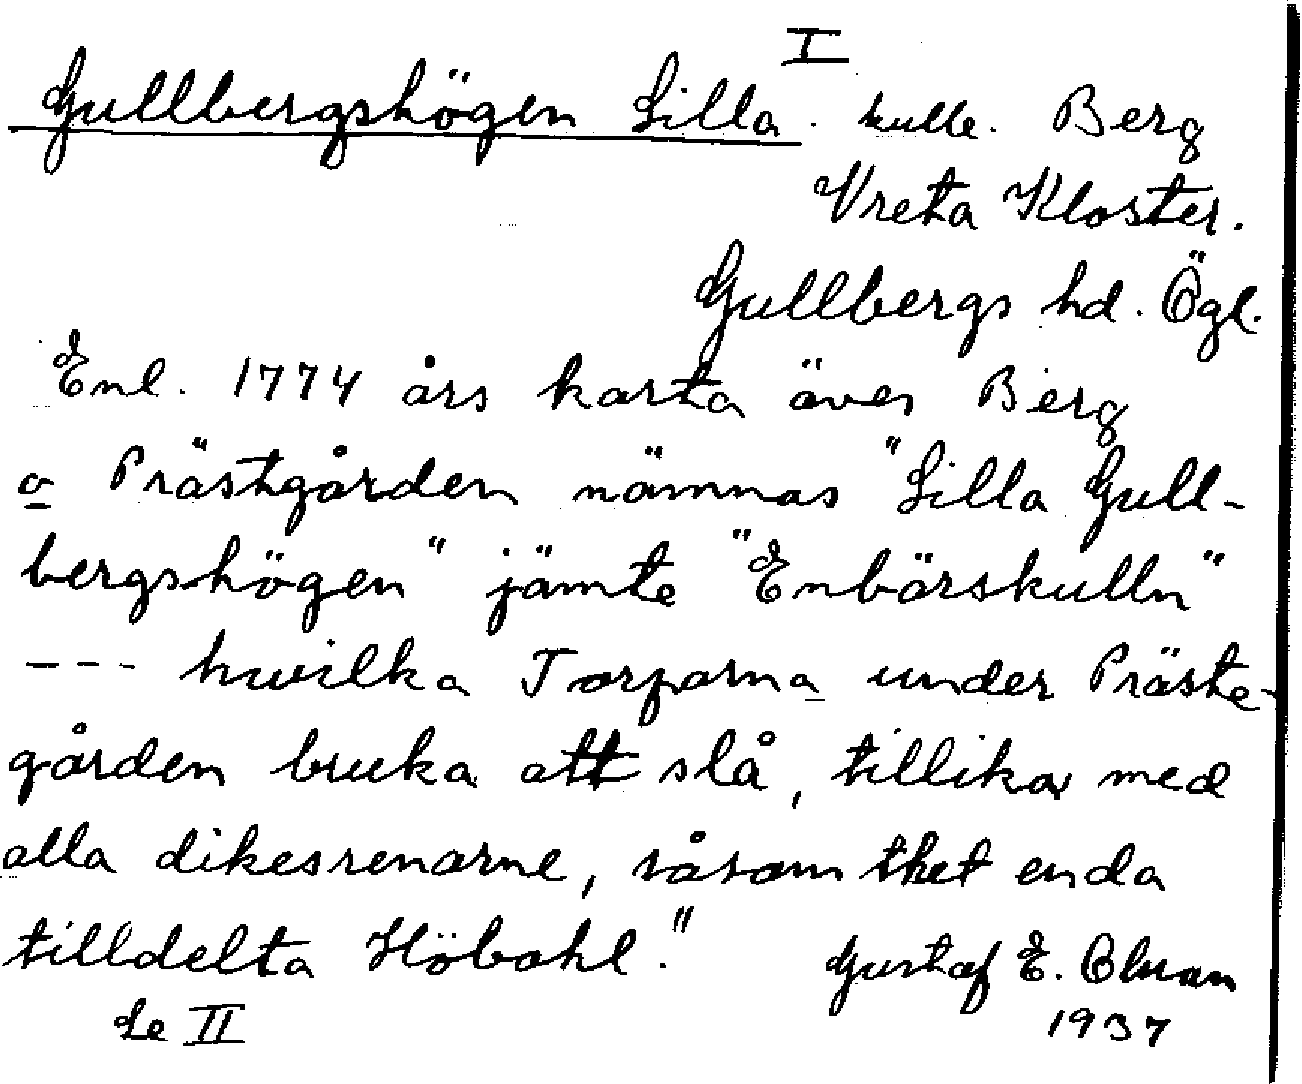 I
Gullbergshögen Lilla. kulle. Berg
Vreta Kloster.
Gullbergs hd. Ögl.
Enl. 1774 års karta över Berg
o Prästgården nämnas "Lilla Gull-
bergshögen" jämte "Enbärskulln"
--- hwilka Torparna under Präste-
gården bruka att slå, tillika med
alla dikesrenarne, såsom thet enda
tilldelta Höbohl."
Gustaf E. Olsson
Se II
1937